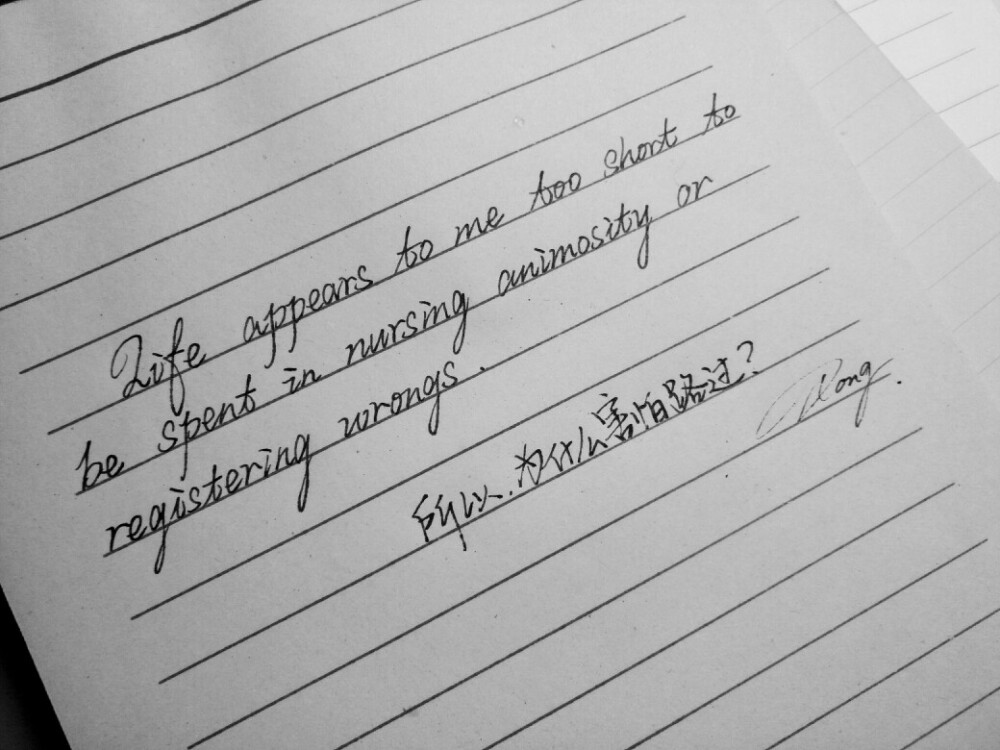 Life appears to me too short to
be spent in nursing animosity or
registering wrongs.
所以.为什么害怕路过?